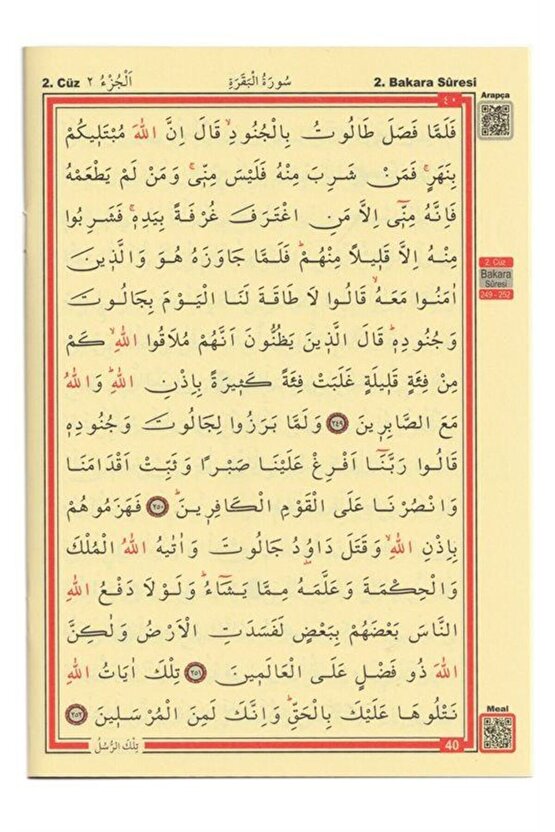 2. Cüz اَلْجُزْءُ ٢ سُورَةُ الْبَقَرَةِ 2. Bakara Sûresi
٤٠
Arapça
فَلَمَّا فَصَلَ طَالُوتُ بِالْجُنُودِۙ قَالَ اِنَّ اللّٰهَ مُبْتَل۪يكُمْ
بِنَهَرٍۚ فَمَنْ شَرِبَ مِنْهُ فَلَيْسَ مِنّ۪يۚ وَمَنْ لَمْ يَطْعَمْهُ
فَاِنَّهُ مِنّ۪ٓي اِلَّا مَنِ اغْتَرَفَ غُرْفَةً بِيَدِه۪ۚ فَشَرِبُوا
مِنْهُ اِلَّا قَل۪يلاً مِنْهُمْۜ فَلَمَّا جَاوَزَهُ هُوَ وَالَّذ۪ينَ
اٰمَنُوا مَعَهُۙ قَالُوا لَا طَاقَةَ لَنَا الْيَوْمَ بِجَالُوتَ
وَجُنُودِه۪ۜ قَالَ الَّذ۪ينَ يَظُنُّونَ اَنَّهُمْ مُلَاقُوا اللّٰهِۙ كَمْ
مِنْ فِئَةٍ قَل۪يلَةٍ غَلَبَتْ فِئَةً كَث۪يرَةً بِاِذْنِ اللّٰهِۜ وَاللّٰهُ
مَعَ الصَّابِر۪ينَ ﴿٢٤٩﴾ وَلَمَّا بَرَزُوا لِجَالُوتَ وَجُنُودِه۪
قَالُوا رَبَّنَٓا اَفْرِغْ عَلَيْنَا صَبْراً وَثَبِّتْ اَقْدَامَنَا
وَانْصُرْنَا عَلَى الْقَوْمِ الْكَافِر۪ينَۜ ﴿٢٥٠﴾ فَهَزَمُوهُمْ
بِاِذْنِ اللّٰهِۙ وَقَتَلَ دَاوُ۫دُ جَالُوتَ وَاٰتٰيهُ اللّٰهُ الْمُلْكَ
وَالْحِكْمَةَ وَعَلَّمَهُ مِمَّا يَشَٓاءُۜ وَلَوْلَا دَفْعُ اللّٰهِ
النَّاسَ بَعْضَهُمْ بِبَعْضٍ لَفَسَدَتِ الْاَرْضُ وَلٰكِنَّ
اللّٰهَ ذُو فَضْلٍ عَلَى الْعَالَم۪ينَ ﴿٢٥١﴾ تِلْكَ اٰيَاتُ اللّٰهِ
نَتْلُوهَا عَلَيْكَ بِالْحَقِّۜ وَاِنَّكَ لَمِنَ الْمُرْسَل۪ينَ ﴿٢٥٢﴾
2. Cüz
Bakara
Sûresi
249 - 252
Meal
تِلْكَ الرُّسُلُ 40